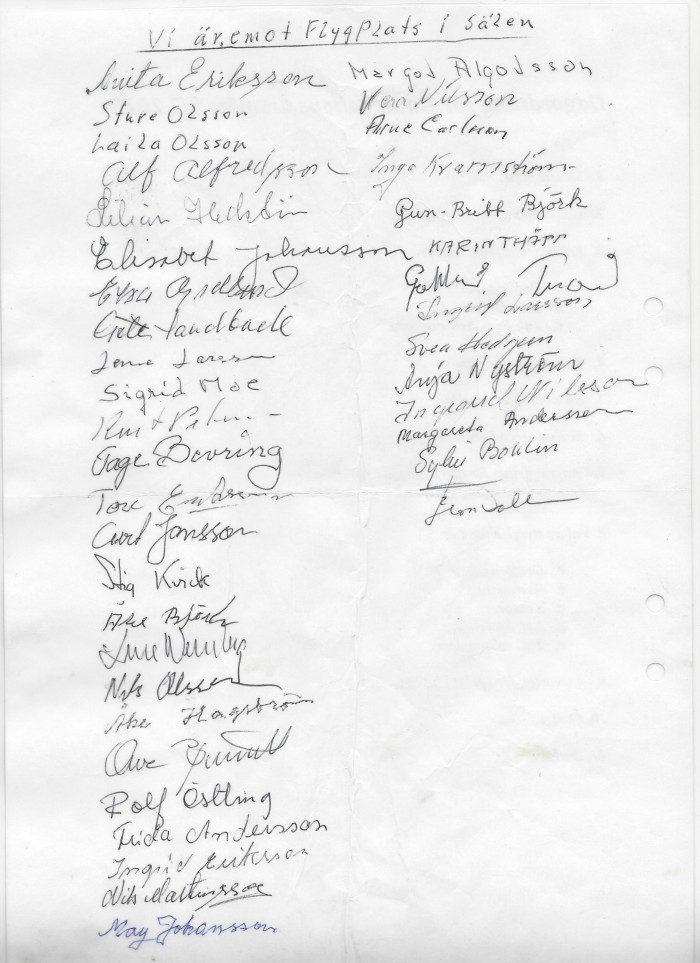 Vi är emot Flygplats i Sälen
Anita Eriksson
Sture Olsson
Laila Olsson
Alf Alfredsson
Lilian Hedström
Elisabet Johansson
Lena Larsson
Sigrid Moe
Tage Bovring
Tore
Curt Jonsson
Stig Kvick
Åke Björk
Nils Olsson
Åke Hagström
Ove
Rolf Östling
Frida Andersson
Ingrid Eriksson
Nils Mattsson
May Johansson
Margot Algotsson
Vera Nilsson
Arne Carlsson
Inga Kvarnström
Gun-Britt Björk
KARIN THÄPP
Ingrid Larsson
Svea Hedgren
Anja Nyström
Ingvard Nilsson
Margareta Andersson
Sylvi Bohlin